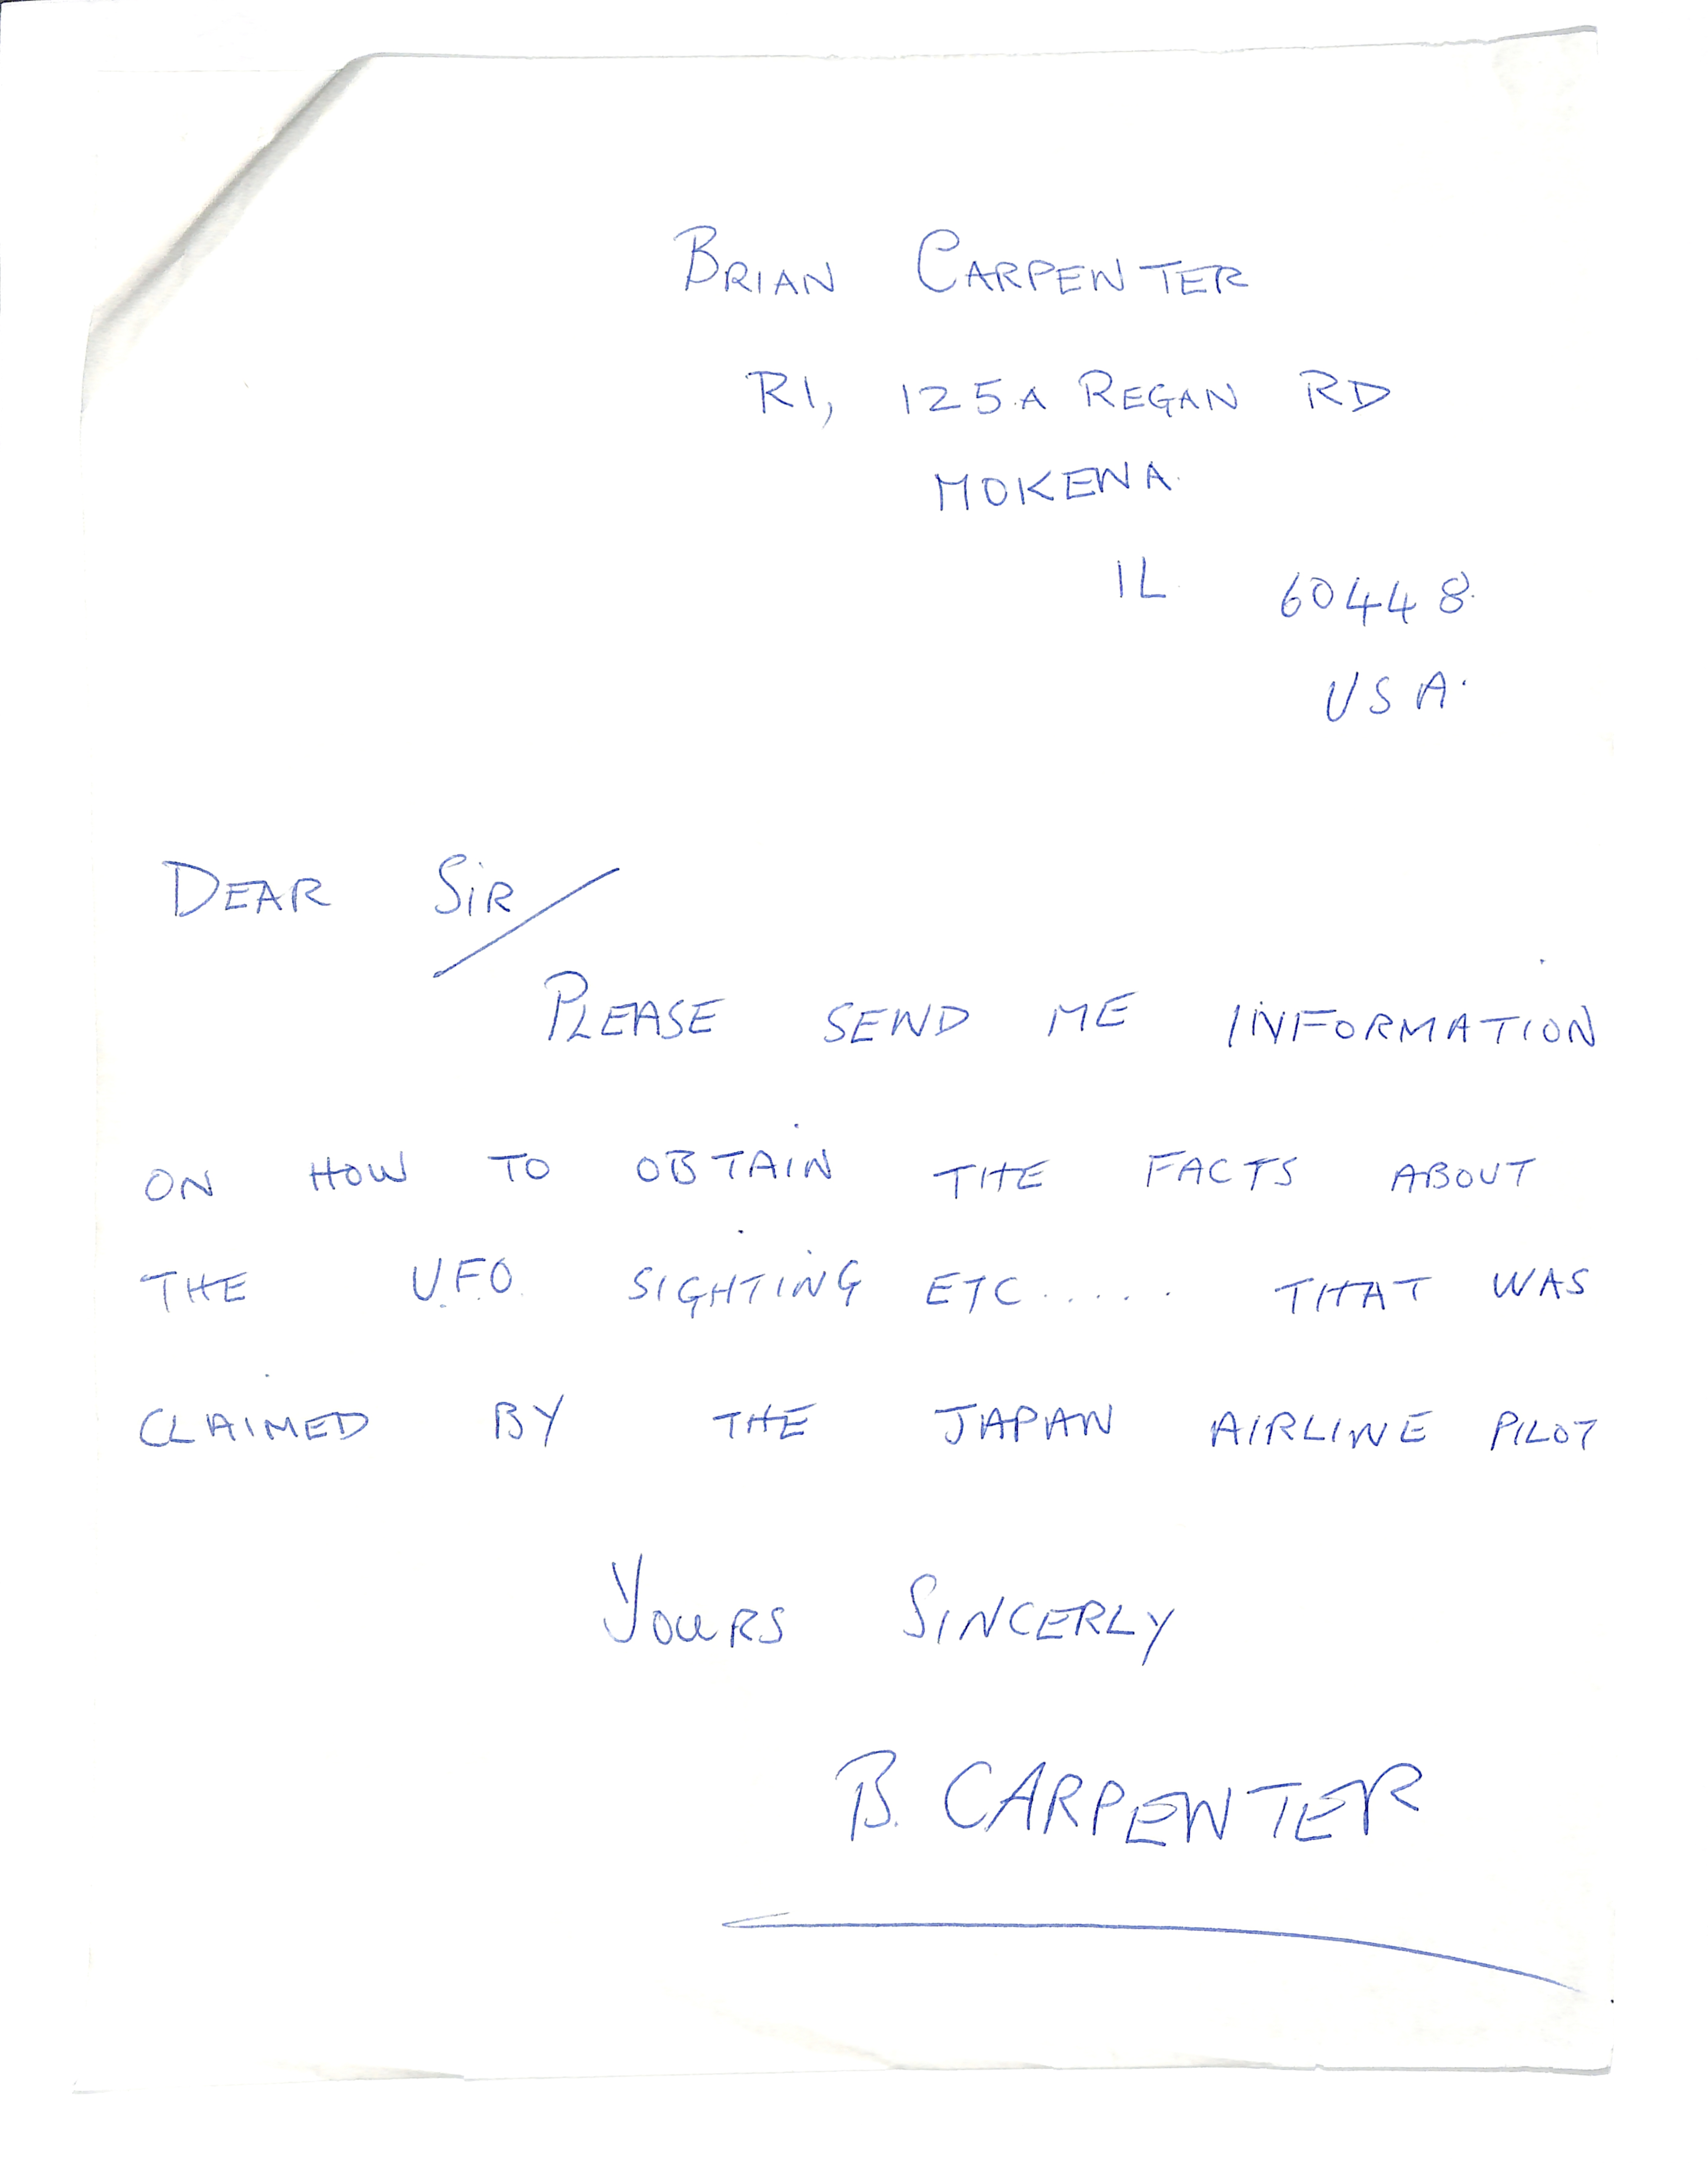 BRIAN CARPENTER
R1, 125A REGAN RD
MOKENA.
IL 60448.
USA.
DEAR SIR/
PLEASE SEND ME INFORMATION
ON HOW TO OBTAIN THE FACTS ABOUT
THE U.F.O. SIGHTING ETC...... THAT WAS
CLAIMED BY THE JAPAN AIRLINE PILOT
YOURS SINCERLY
B. CARPENTER